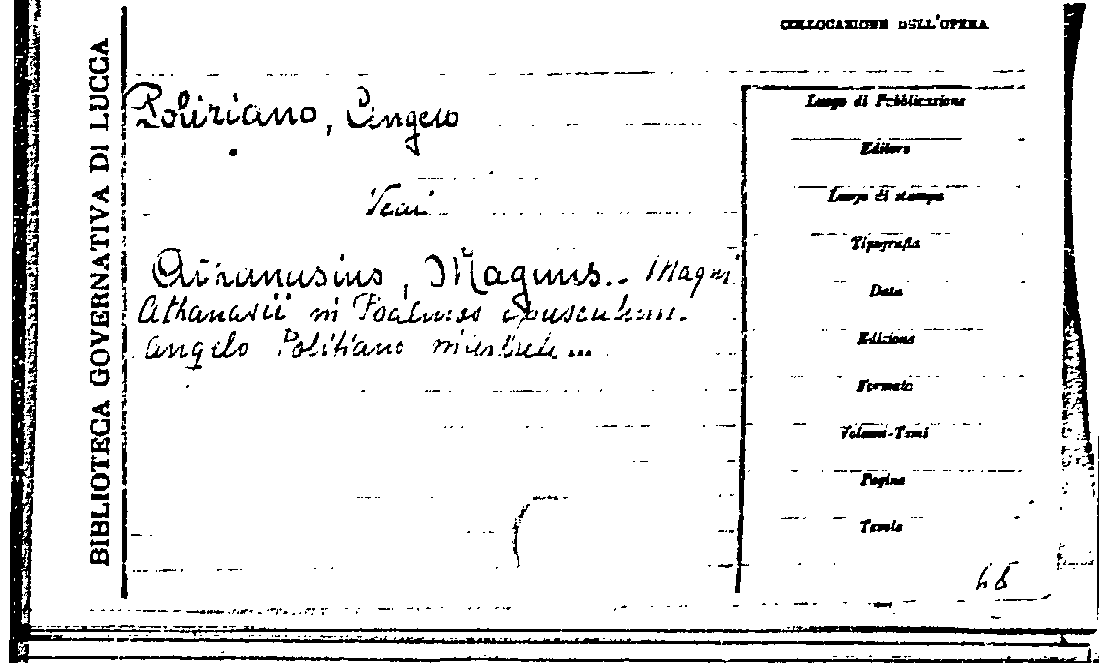 COLLOCAZIONE DELL'OPERA
BIBLIOTECA GOVERNATIVA DI LUCCA
Poliziano, Angelo
Vedi
Athanasius, Magnus.. Magni
Athanasii in Psalmos opusculum.
Angelo Politiano interprete...
Luogo di Pubblicazione
Editore
Luogo di stampa
Tipografia
Data
Edizione
Formato
Volumi-Tomi
Pagine
Tavole